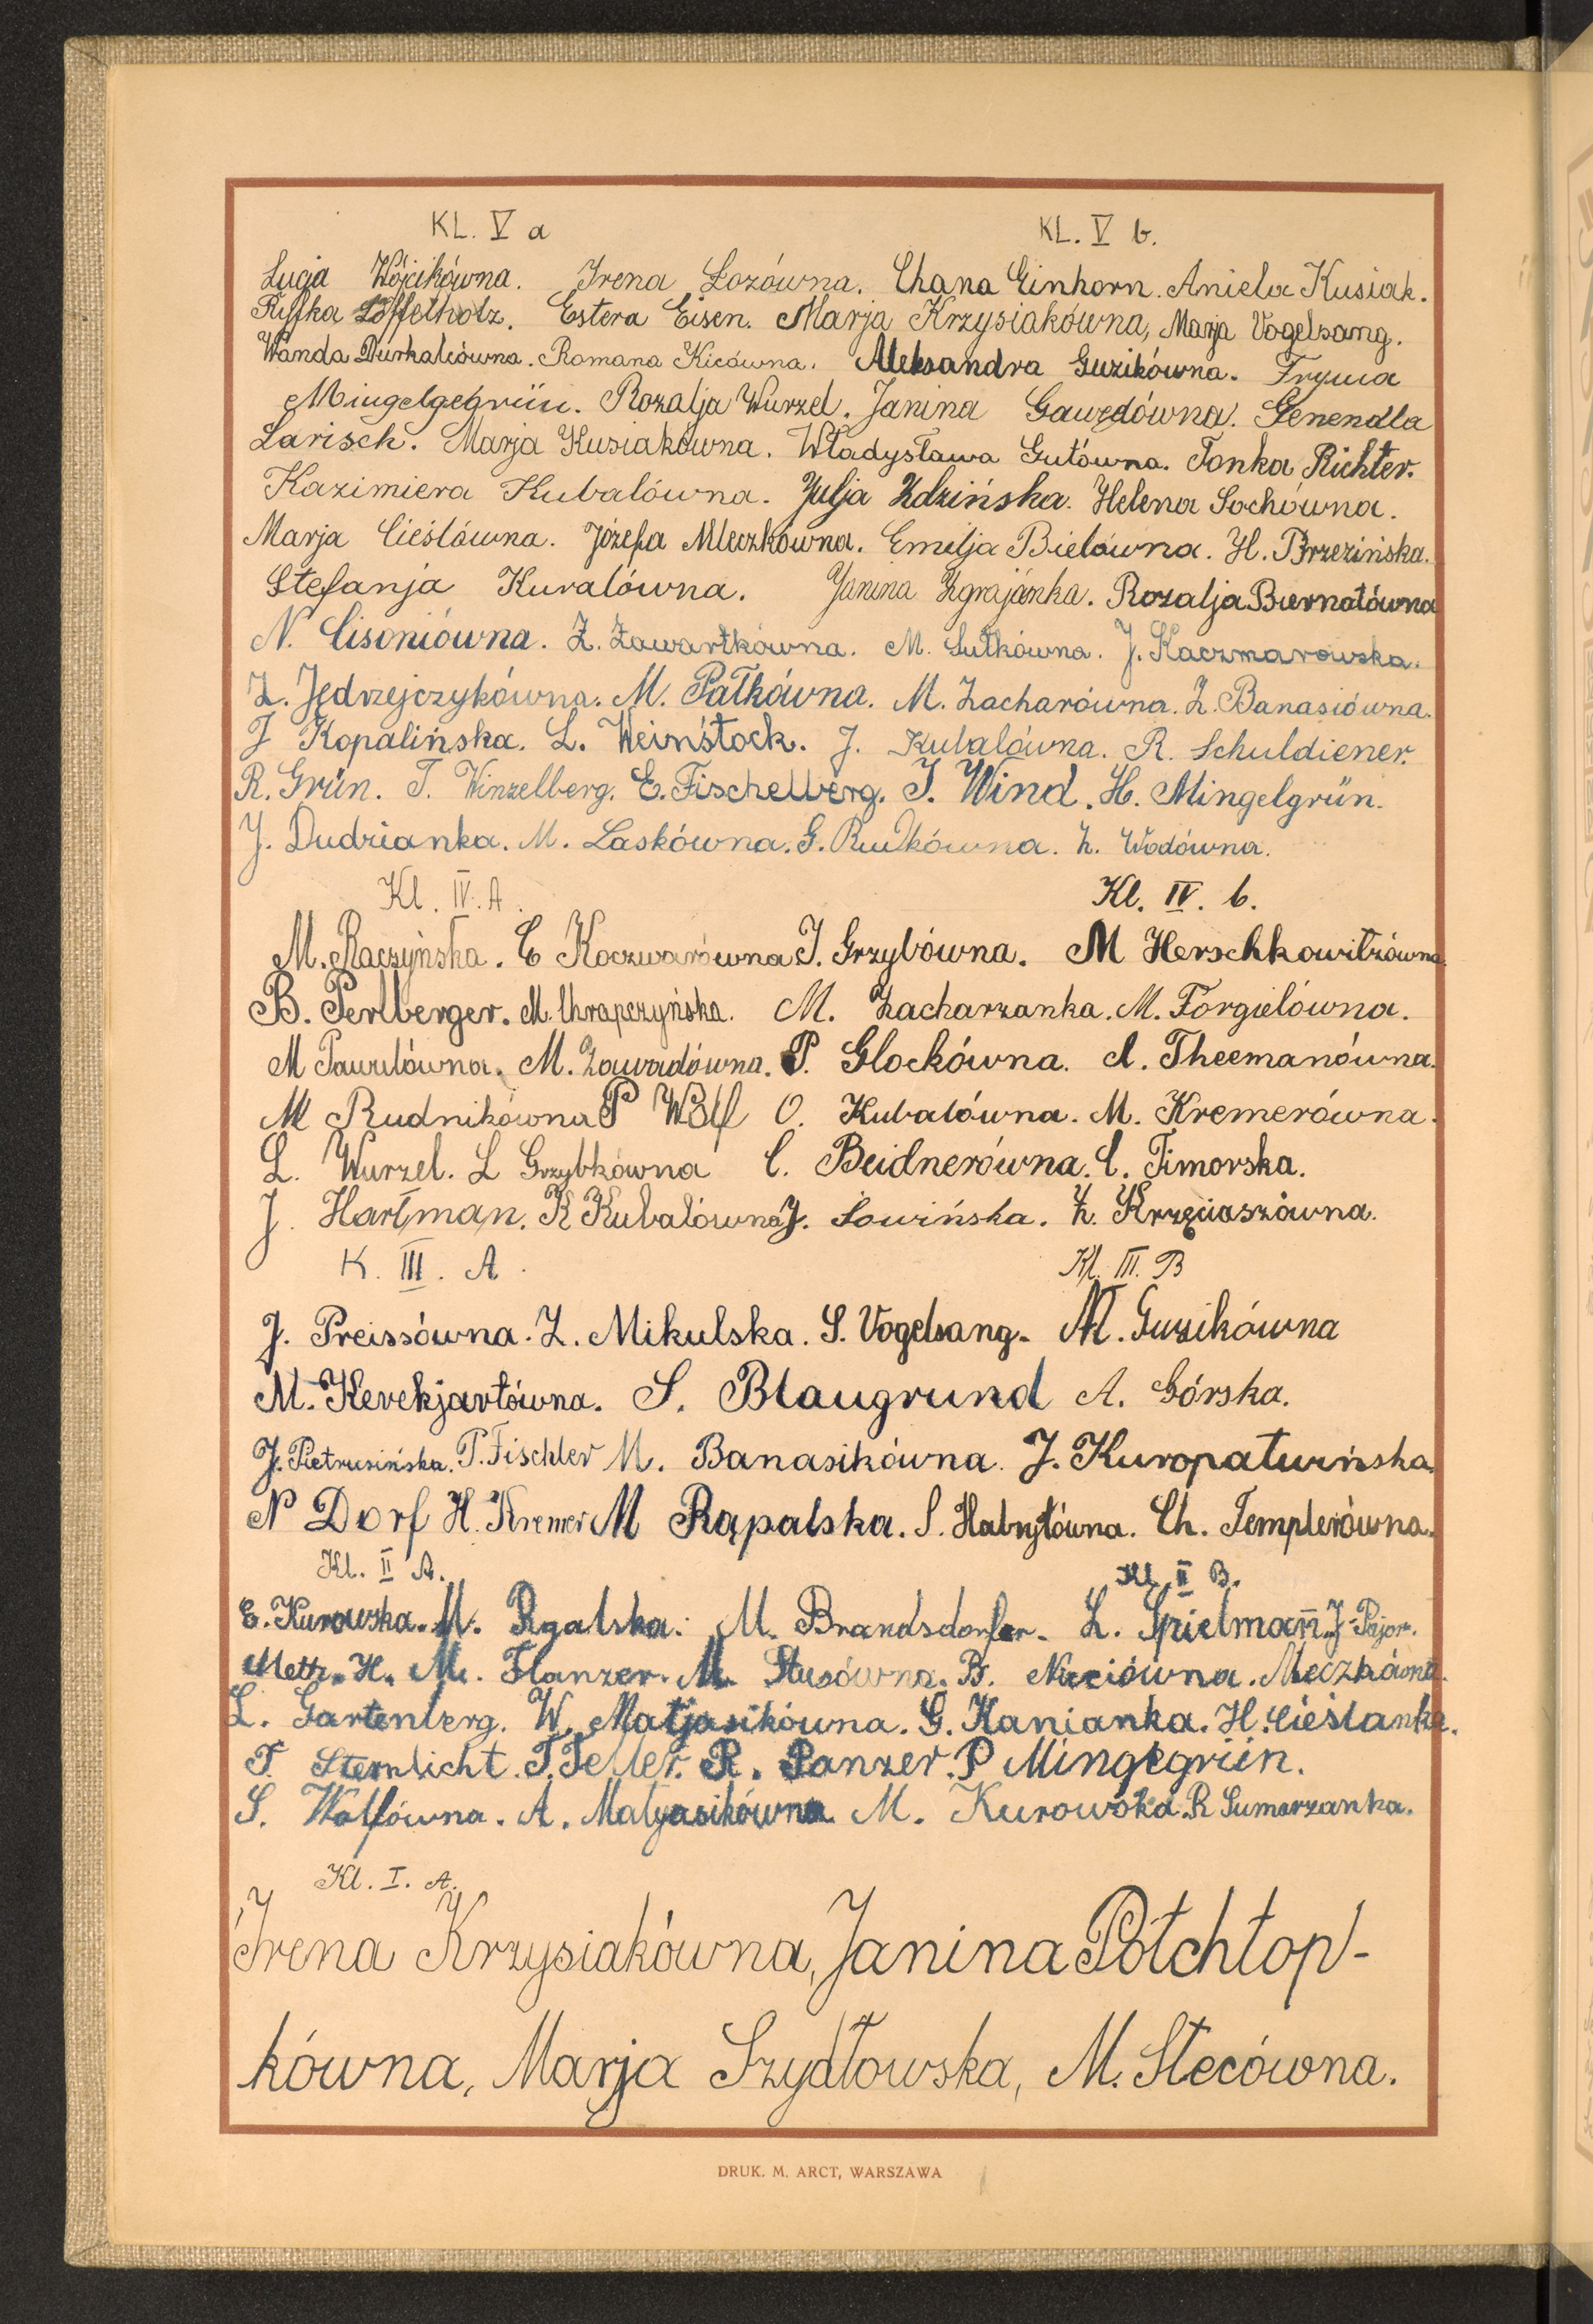 KL. V a KL. V b.
Łucja Wójcikówna. Irena Łozówna. Chana Einhorn. Aniela Kusiak.
Ryfka Löffelholz. Estera Eisen. Marja Krzysiakówna, Marja Vogelsang.
Wanda Durkalcówna. Romana Kicówna. Aleksandra Guzikówna. Fryma
Mingelgegrün. Rozalja Wurzel. Janina Gawędówna. Genendla
Larisch. Marja Kusiakówna. Władysława Gutówna. Tonka Richter.
Kazimiera Kubalówna. Julja Zdzińska. Helena Sochówna.
Marja Cieślówna. Józefa Mleczkówna. Emilja Bielówna. H. Brzezińska.
Stefanja Kuralówna. Janina Zgrajánka. Rozalja Biernatówna
N. Cisoniówna. Z. Zawartkówna. M. Sutkówna. J. Kaczmarowska.
Z. Jędrzejczykówna. M. Pałkówna. M. Zacharówna. Z. Banasiówna.
J Kopalińska. L. Weinstock. J. Kubalówna. R. Schuldiener.
R. Grün. T. Winzelberg. E. Fischelberg. J. Wind. H. Mingelgrün.
J. Dudzianka. M. Laskówna. G. Rudkówna. Z. Wodówna.
Kl. IV. A. Kl. IV. b.
M. Raczyńska. C Koczwarówna J. Grzybówna. M Herschkowitzówna.
B. Perlberger. M. Chrapczyńska. M. Zacharzanka. M. Forgielówna.
M Pawulówna. M. Zawadówna. P. Glockówna. A. Theemanówna.
M Rudnikówna P Wolf O. Kubalówna. M. Kremerówna.
L. Wurzel. L Grzybkówna C. Beidnerówna. C. Timorska.
J. Hartman. K Kubalówna J. Łowińska. Z. Krzęciaszówna.
K. III. A. Kl. III. B
J. Preissówna. Z. Mikulska. S. Vogelsang. M. Guzikówna
M. Kerekjartówna. S. Blaugrund A. Górska.
J. Pietrusińska. P. Fischler M. Banasikówna. J. Kuropatwińska.
N Dorf H. Kremer M Rąpalska. S. Habrytówna. Ch. Templerówna.
Kl. II A. Kl. II B.
E. Kurowska. M. Rgalska. M. Brandsdorfer. L. Spielmann. J. Pajor.
Mettz. H. M. Flanzer. M. Stusówna. B. Nieciówna. Meczkówna.
L. Gartenberg. W. Matjasikówna. G. Kanianka. H. Cieślanka.
T. Sternlicht. T. Teller. R. Panzer. P Mingegrün.
S. Wolfówna. A. Matyasikówna M. Kurowska. R Sumarzanka.
Kl. I. A.
Irena Krzysiakówna, Janina Półchłop-
kówna, Marja Szydłowska, M. Stecówna.
DRUK. M. ARCT, WARSZAWA